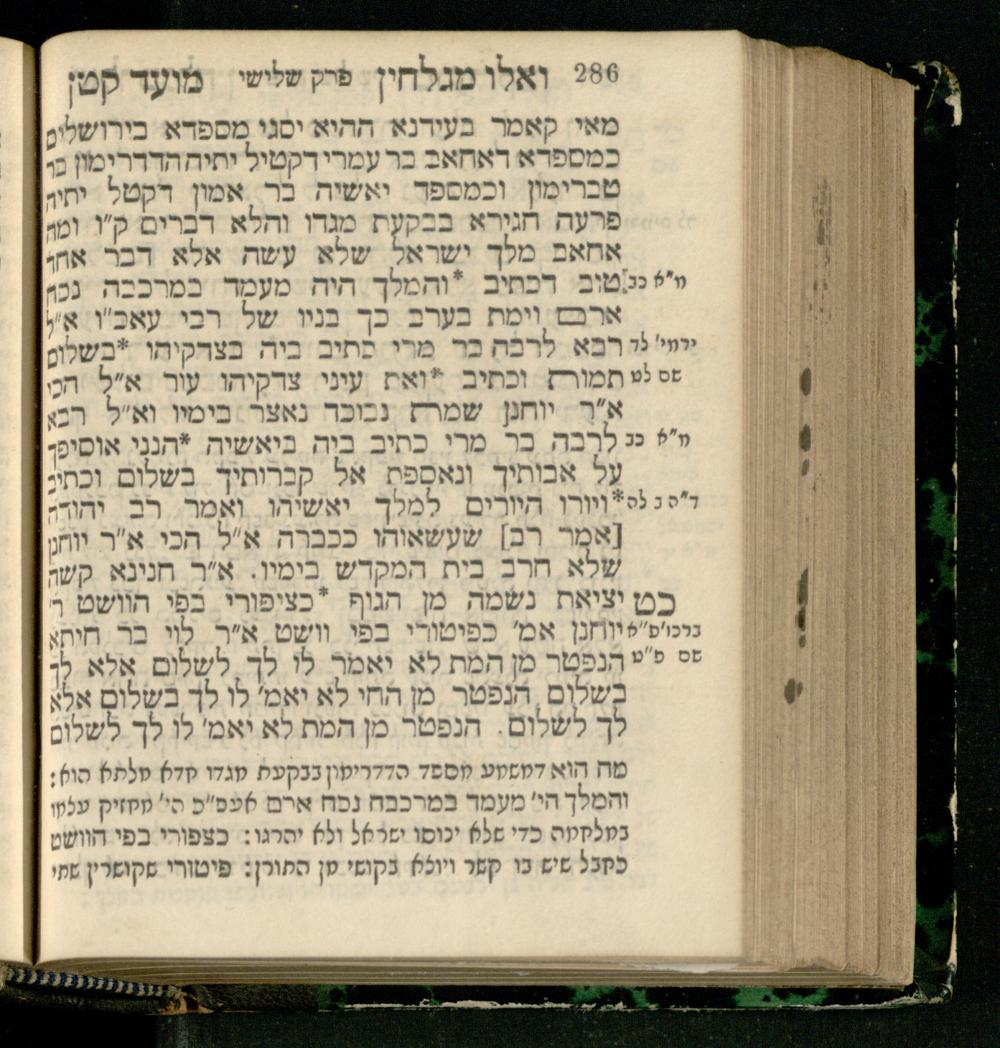 286 ואלו מגלחין פרק שלישי מועד קטן
מאי קאמר בעידנא ההיא יסגי מספדא בירושלים
כמספדא דאחאב בר עמרי דקטיל יתיה הדדרימון בר
טברימון וכמספד יאשיה בר אמון דקטל יתיה
פרעה חגירא בבקעת מגדו והלא דברים ק״ו ומה
אחאב מלך ישראל שלא עשה אלא דבר אחד
מ״א כב] טוב דכתיב *והמלך היה מעמד במרכבה נכח
ארם וימת בערב כך בניו של רבי עאכ״ו א״ל
ירמי׳ לד רבא לרבה בר מרי כתיב ביה בצדקיהו *בשלום
שם לט תמות וכתיב *ואת עיני צדקיהו עור א״ל הכי
א״ר יוחנן שמת נבוכד נאצר בימיו וא״ל רבא
מ״ב כב לרבה בר מרי כתיב ביה ביאשיה *הנני אוסיפך
על אבותיך ונאספת אל קברותיך בשלום וכתיב
ד״ה ב לה *ויורו היורים למלך יאשיהו ואמר רב יהודה
[אמר רב] שעשאוהו ככברה א״ל הכי א״ר יוחנן
שלא חרב בית המקדש בימיו. א״ר חנינא קשה
כט יציאת נשמה מן הגוף *כציפורי בפי הוושט ר׳
ברכו׳ פ״א יוחנן אמ׳ כפיטורי בפי וושט א״ר לוי בר חיתא
שם פ״ט הנפטר מן המת לא יאמר לו לך לשלום אלא לך
בשלום הנפטר מן החי לא יאמ׳ לו לך בשלום אלא
לך לשלום. הנפטר מן המת לא יאמ׳ לו לך לשלום
מה הוא דמשמע מספד הדדרימון בבקעת מגדו חדא מלתא הוא:
והמלך הי׳ מעמד במרכבה נכח ארם אעפ״כ הי׳ מחזיק עצמו
במלחמה כדי שלא ינוסו ישראל ולא יהרגו: כצפורי בפי הוושט
כחבל שיש בו קשר ויוצא בקושי מן התורן: פיטורי שקושרין שתי